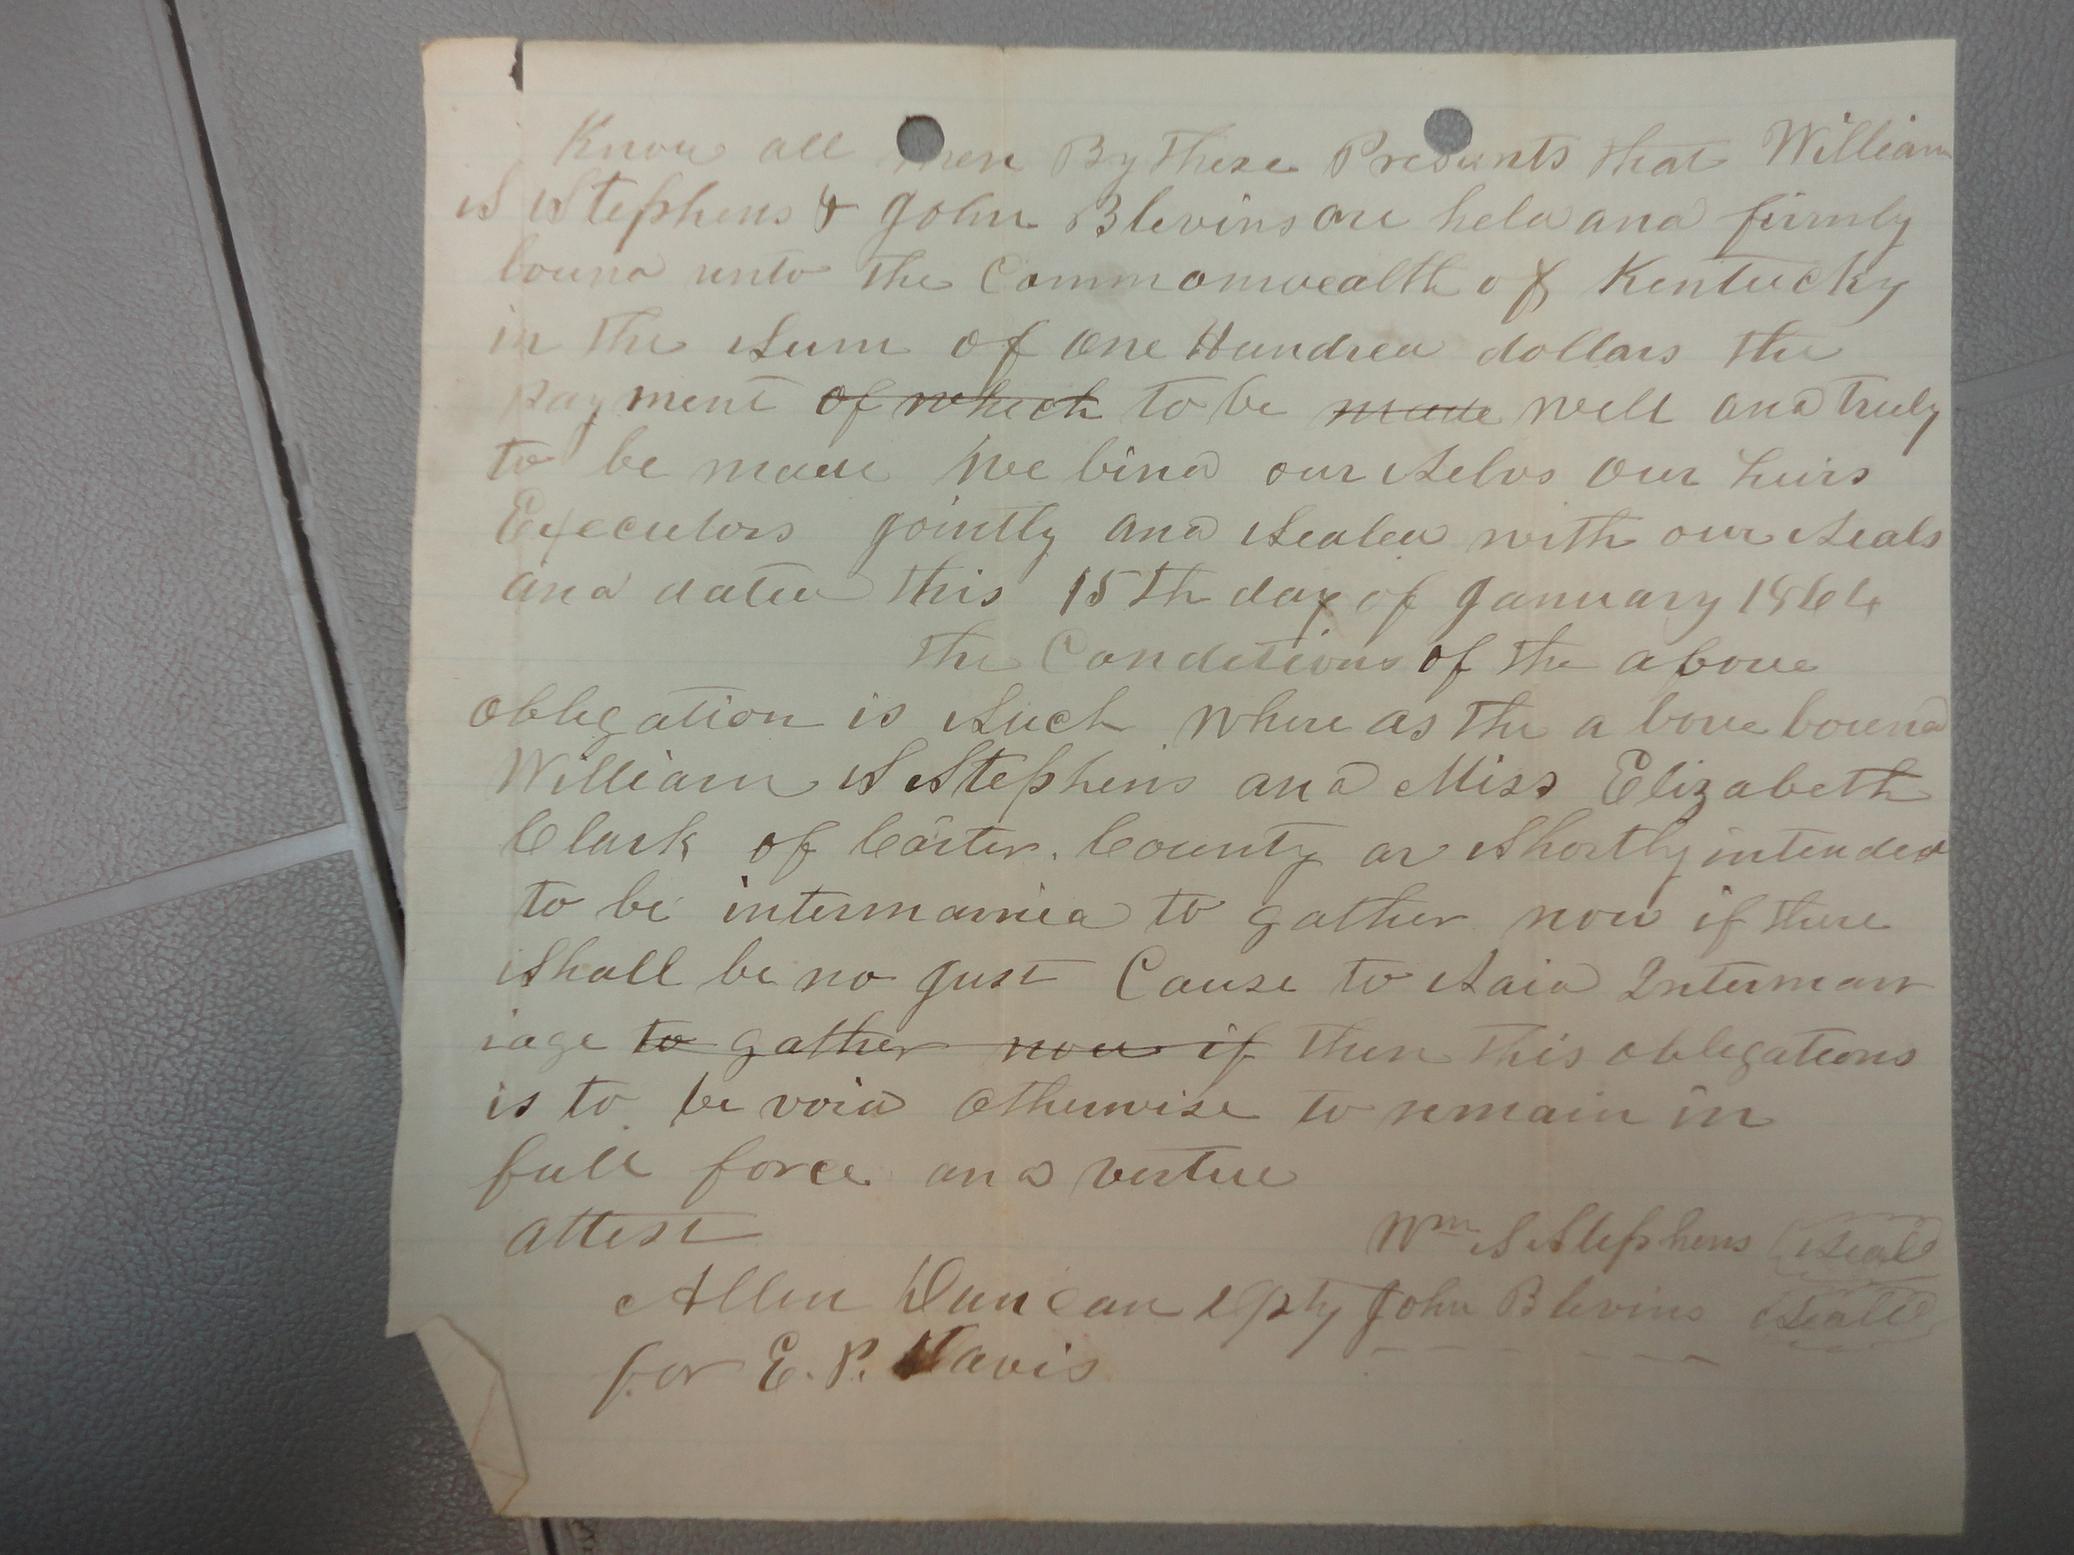 Know all men By These Presents that William
S Stephens & John Blevins are held and firmly
bound unto the Commonwealth of Kentucky
in the Sum of One Hundred dollars the
payment of which to be made well and truly
to be made we bind our Selvs our heirs
Executors jointly and Sealed with our Seals
and dated this 15th day of January 1864
The Conditions of the above
obligation is Such where as the a bove bound
William S Stephens and Miss Elizabeth
Clark of Carter County ar Shortly intended
to be intermarried to gather now if there
Shall be no Just Cause to Said Intermarr
iage to gather now if then this obligations
is to be void otherwise to remain in
full force and virtue
attest Wm S Stephens Seal
Allen Duncan depty John Blevins Seal
for E. P. Davis